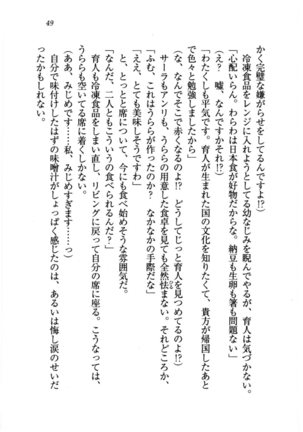 49
かく完璧な嫌がらせをしてるんですよ!?）
冷凍食品をレンジに入れようとしてる幼なじみを睨んでやるが、育人は気づかない。
「心配いらん。わらわは日本食が好物だからな。納豆も生卵も箸も問題ない」
（え？　嘘、なんですかそれ!?）
「わたくしも平気です。育人が生まれた国の文化を知りたくて、貴方が帰国したあと
で色々と勉強しましたから」
（な、なんでそこで赤くなるのよ!?　どうしてじっと育人を見つめてるのよ!?）
サーラもアンリも、うららの用意した食卓を見ても全然怯まない。それどころか、
「ふむ、これはうららが作ったのか？　なかなかの手際だな」
「ええ、とても美味しそうですわ」
と、とっとと席について、今にも食べ始めそうな雰囲気だ。
「なんだ、二人ともこういうの食べられるんだ？」
育人も冷凍食品をしまい直し、リビングに戻って自分の席に座る。こうなっては、
うららも空いてる席に着くしかない。
（ああ、みじめです……っ。私、みじめすぎます……っ）
自分で味付けしたはずの味噌汁がしょっぱく感じたのは、あるいは悔し涙のせいだ
ったかもしれない。